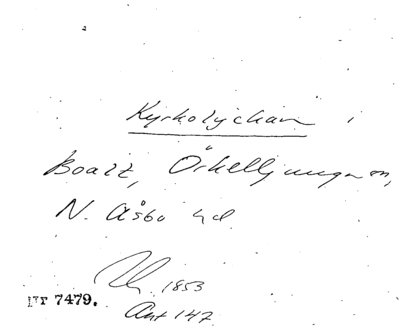 Kyrkolyckan i
Boalt, Örkelljunga sn,
N. Åsbo hd.
1853
nr 7479.
Ant 147